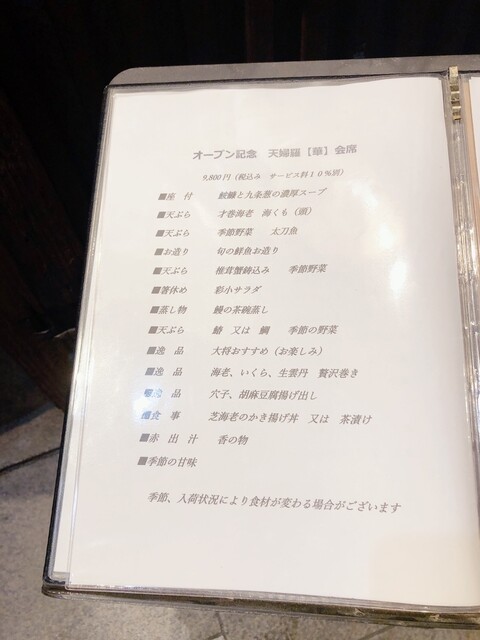 オープン記念　天婦羅【華】会席
9,800円（税込み　サービス料１０％別）
■座　付　鮟鱇と九条葱の濃厚スープ
■天ぷら　才巻海老　海くも（頭）
■天ぷら　季節野菜　太刀魚
■お造り　旬の鮮魚お造り
■天ぷら　椎茸蟹鋳込み　季節野菜
■箸休め　彩小サラダ
■蒸し物　鰻の茶碗蒸し
■天ぷら　鰆　又は　鯛　季節の野菜
■逸　品　大将おすすめ（お楽しみ）
■逸　品　海老、いくら、生雲丹　贅沢巻き
■逸　品　穴子、胡麻豆腐揚げ出し
■食　事　芝海老のかき揚げ丼　又は　茶漬け
■赤　出　汁　香の物
■季節の甘味
季節、入荷状況により食材が変わる場合がございます